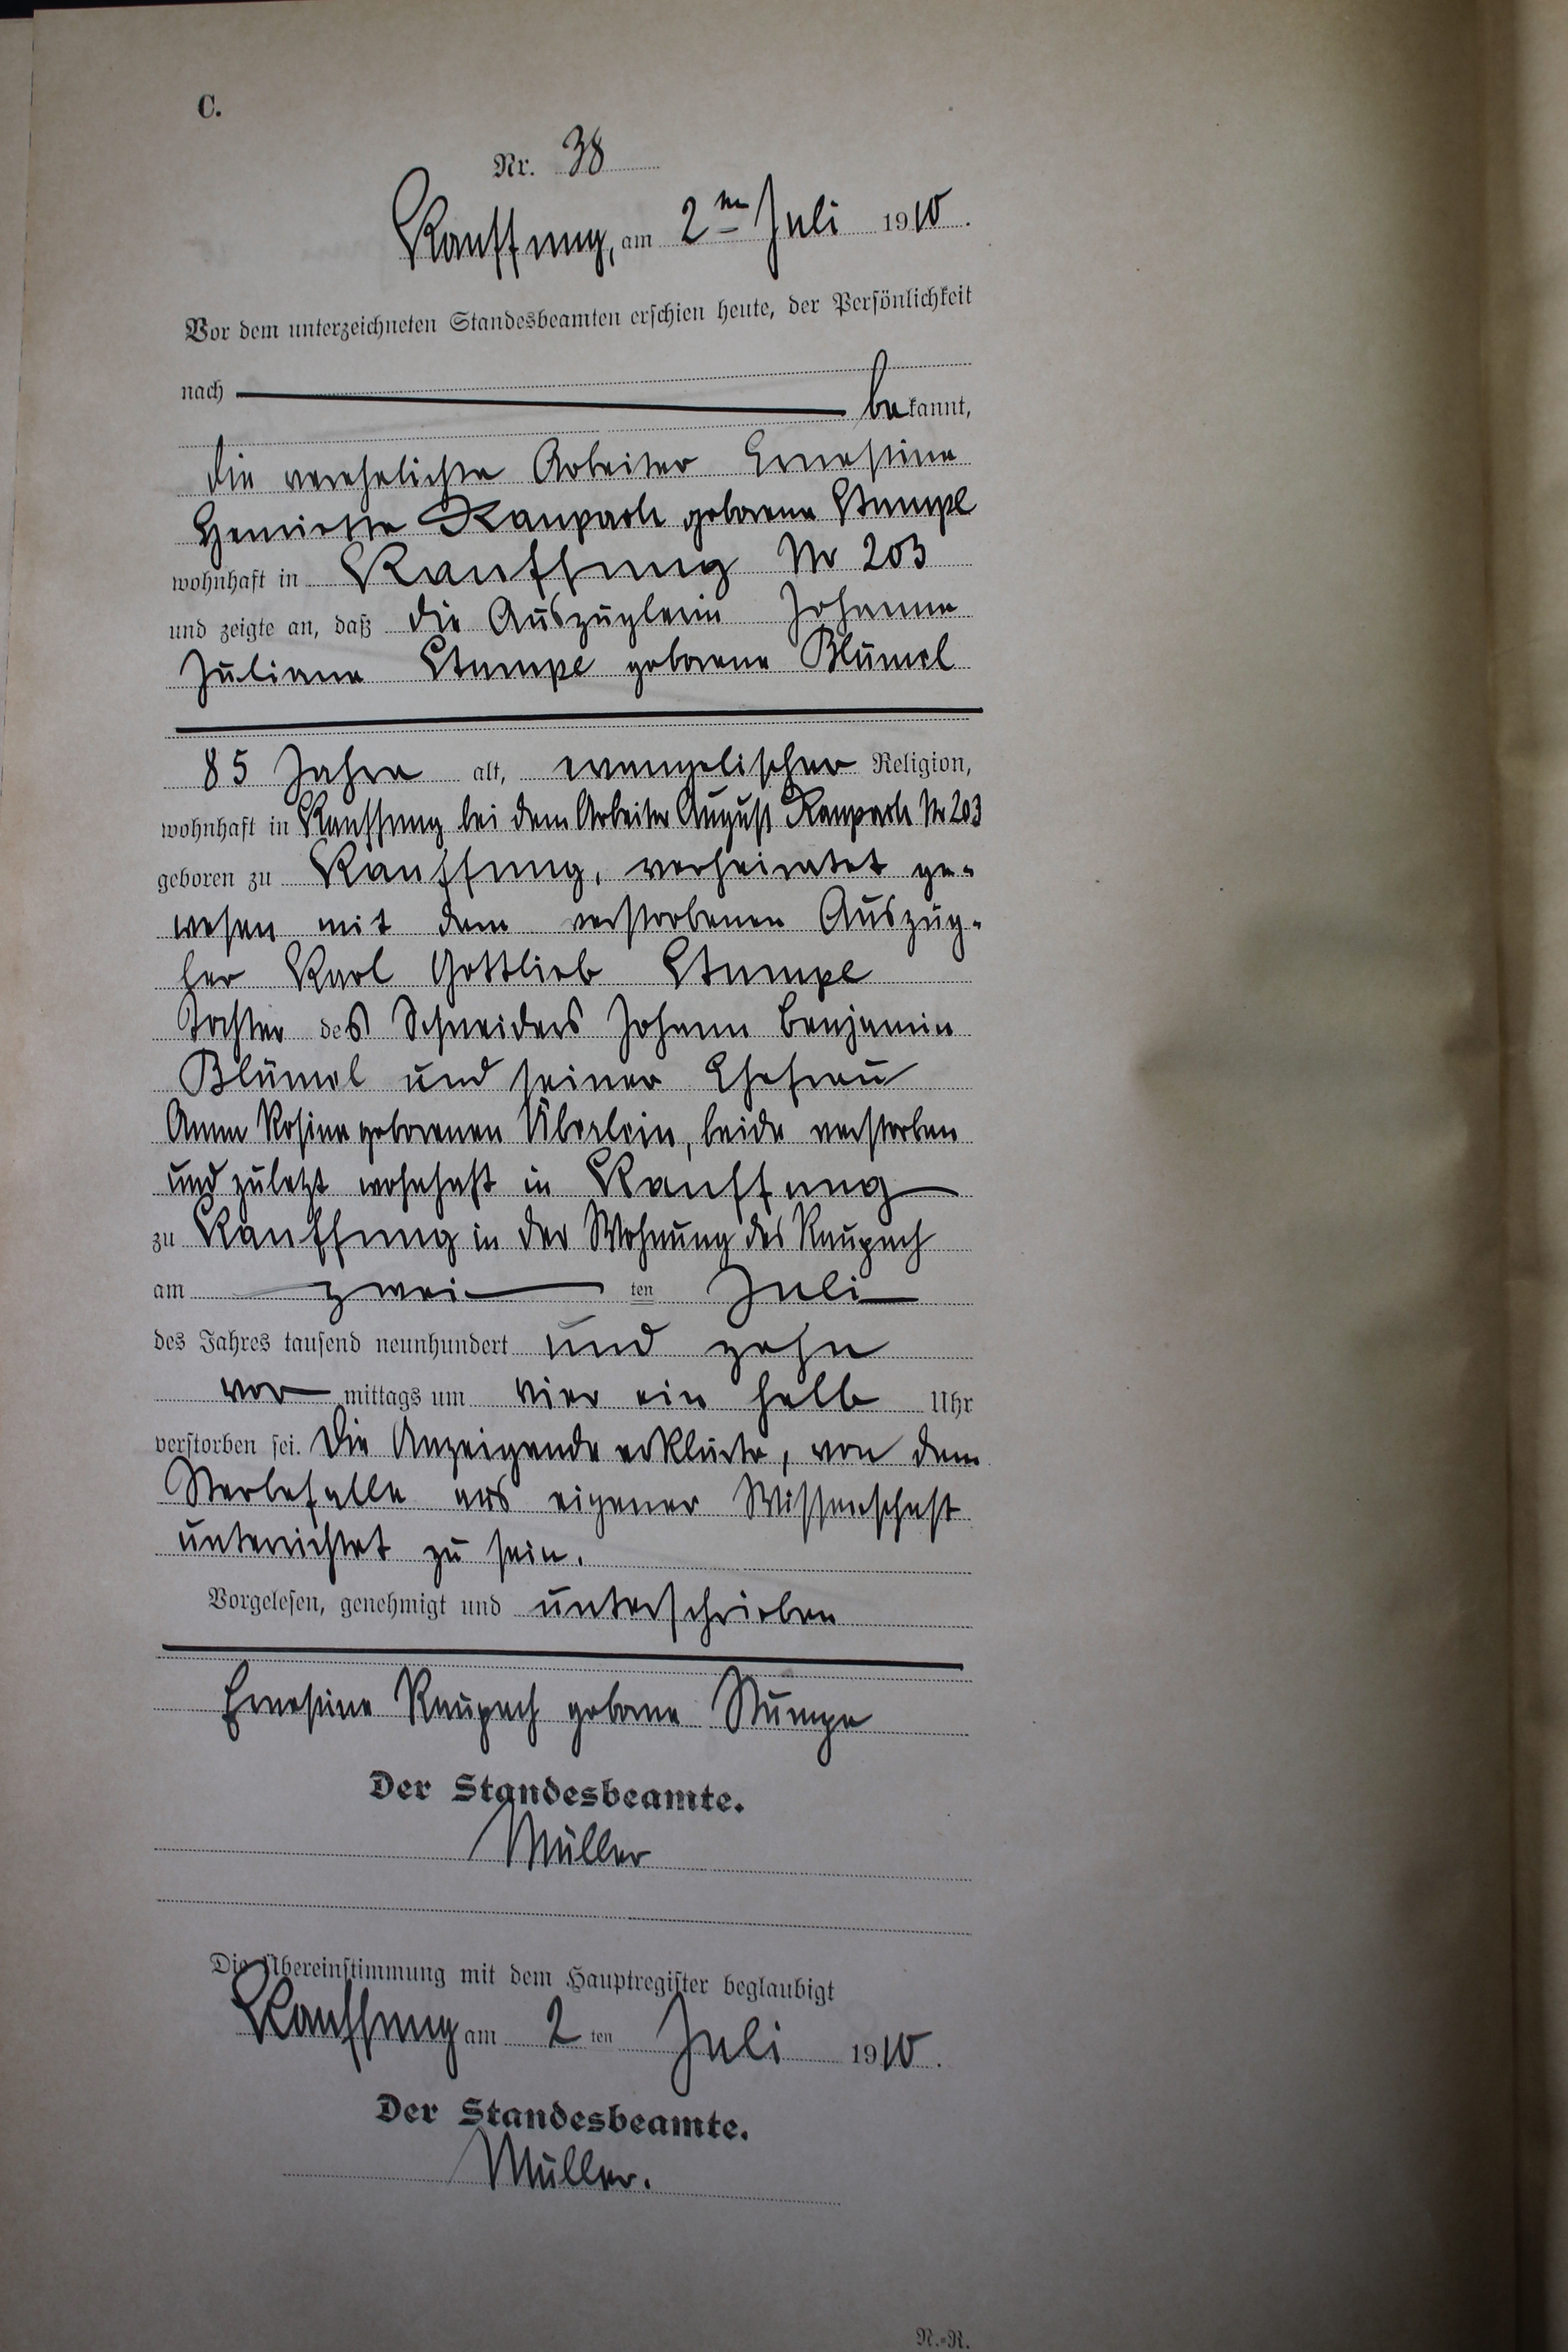 C.
Nr. 38
Kauffung, am 2ten Juli 1910.
Vor dem unterzeichneten Standesbeamten erschien heute, der Persönlichkeit
nach bekannt,
die verehelichte Arbeiter Ernestine
Henriette Raupach geborene Stumpe
wohnhaft in Kauffung Nr 203
und zeigte an, daß die Auszüglerin Johanne
Juliane Stumpe geborene Blümel
85 Jahre alt, evangelischer Religion,
wohnhaft in Kauffung bei dem Arbeiter August Raupach Nr 203
geboren zu Kauffung, verheiratet ge-
wesen mit dem verstorbenen Auszüg-
ler Karl Gottlieb Stumpe
Tochter des Schneiders Johann Benjamin
Blümel und seiner Ehefrau
Anna Rosina geborenen Überlein, beide verstorben
und zuletzt wohnhaft in Kauffung
zu Kauffung in der Wohnung des Raupach
am zwei ten Juli
des Jahres tausend neunhundert und zehn
vor mittags um vier ein halb Uhr
verstorben sei. Die Anzeigende erklärte, von dem
Sterbefalle aus eigener Wissenschaft
unterrichtet zu sein.
Vorgelesen, genehmigt und unterschrieben
Ernestine Raupach geborne Stumpe
Der Standesbeamte.
Müller
Die Übereinstimmung mit dem Hauptregister beglaubigt
Kauffung am 2 ten Juli 1910.
Der Standesbeamte.
Müller.
N.-R.